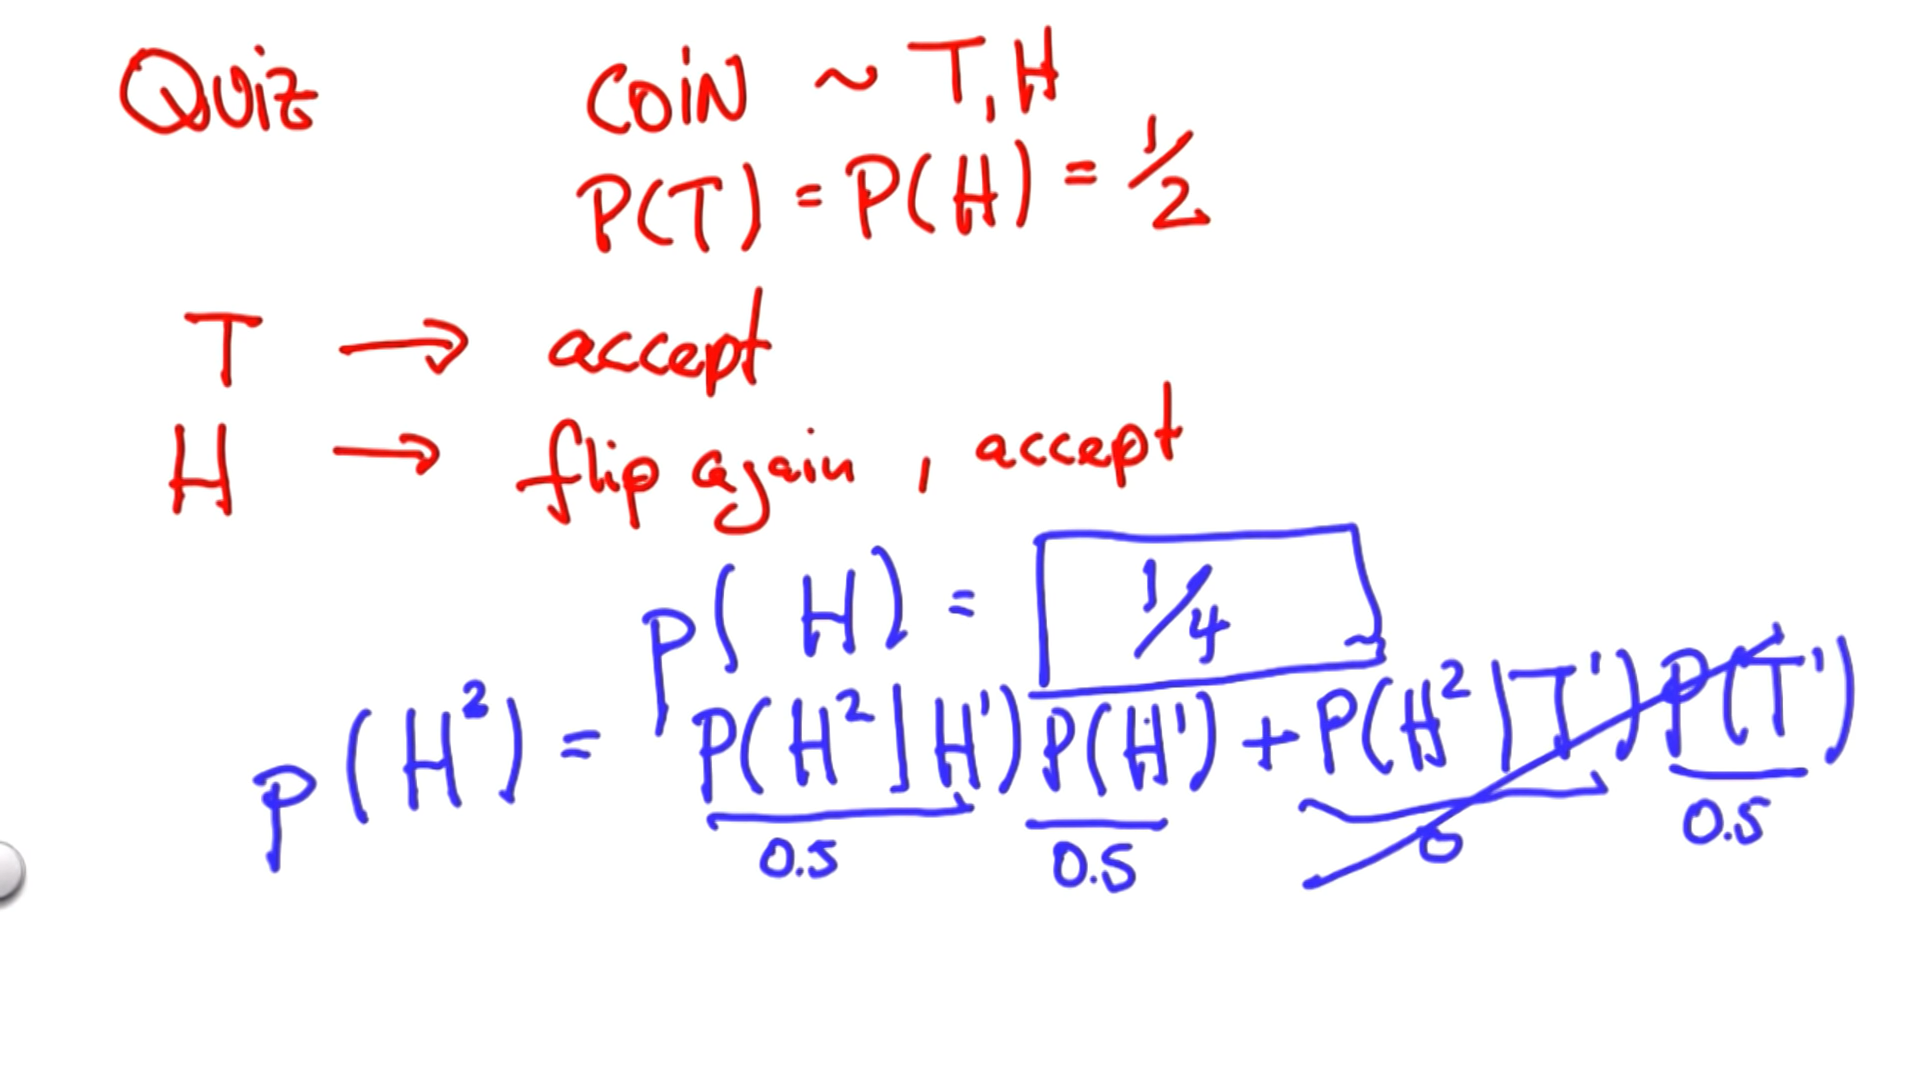 Quiz COIN ~ T, H
P(T) = P(H) = 1/2
T → accept
H → flip again, accept
P(H) = 1/4
P(H²) = P(H²|H¹) P(H¹) + P(H²|T¹) P(T¹)
0.5 0.5 0 0.5